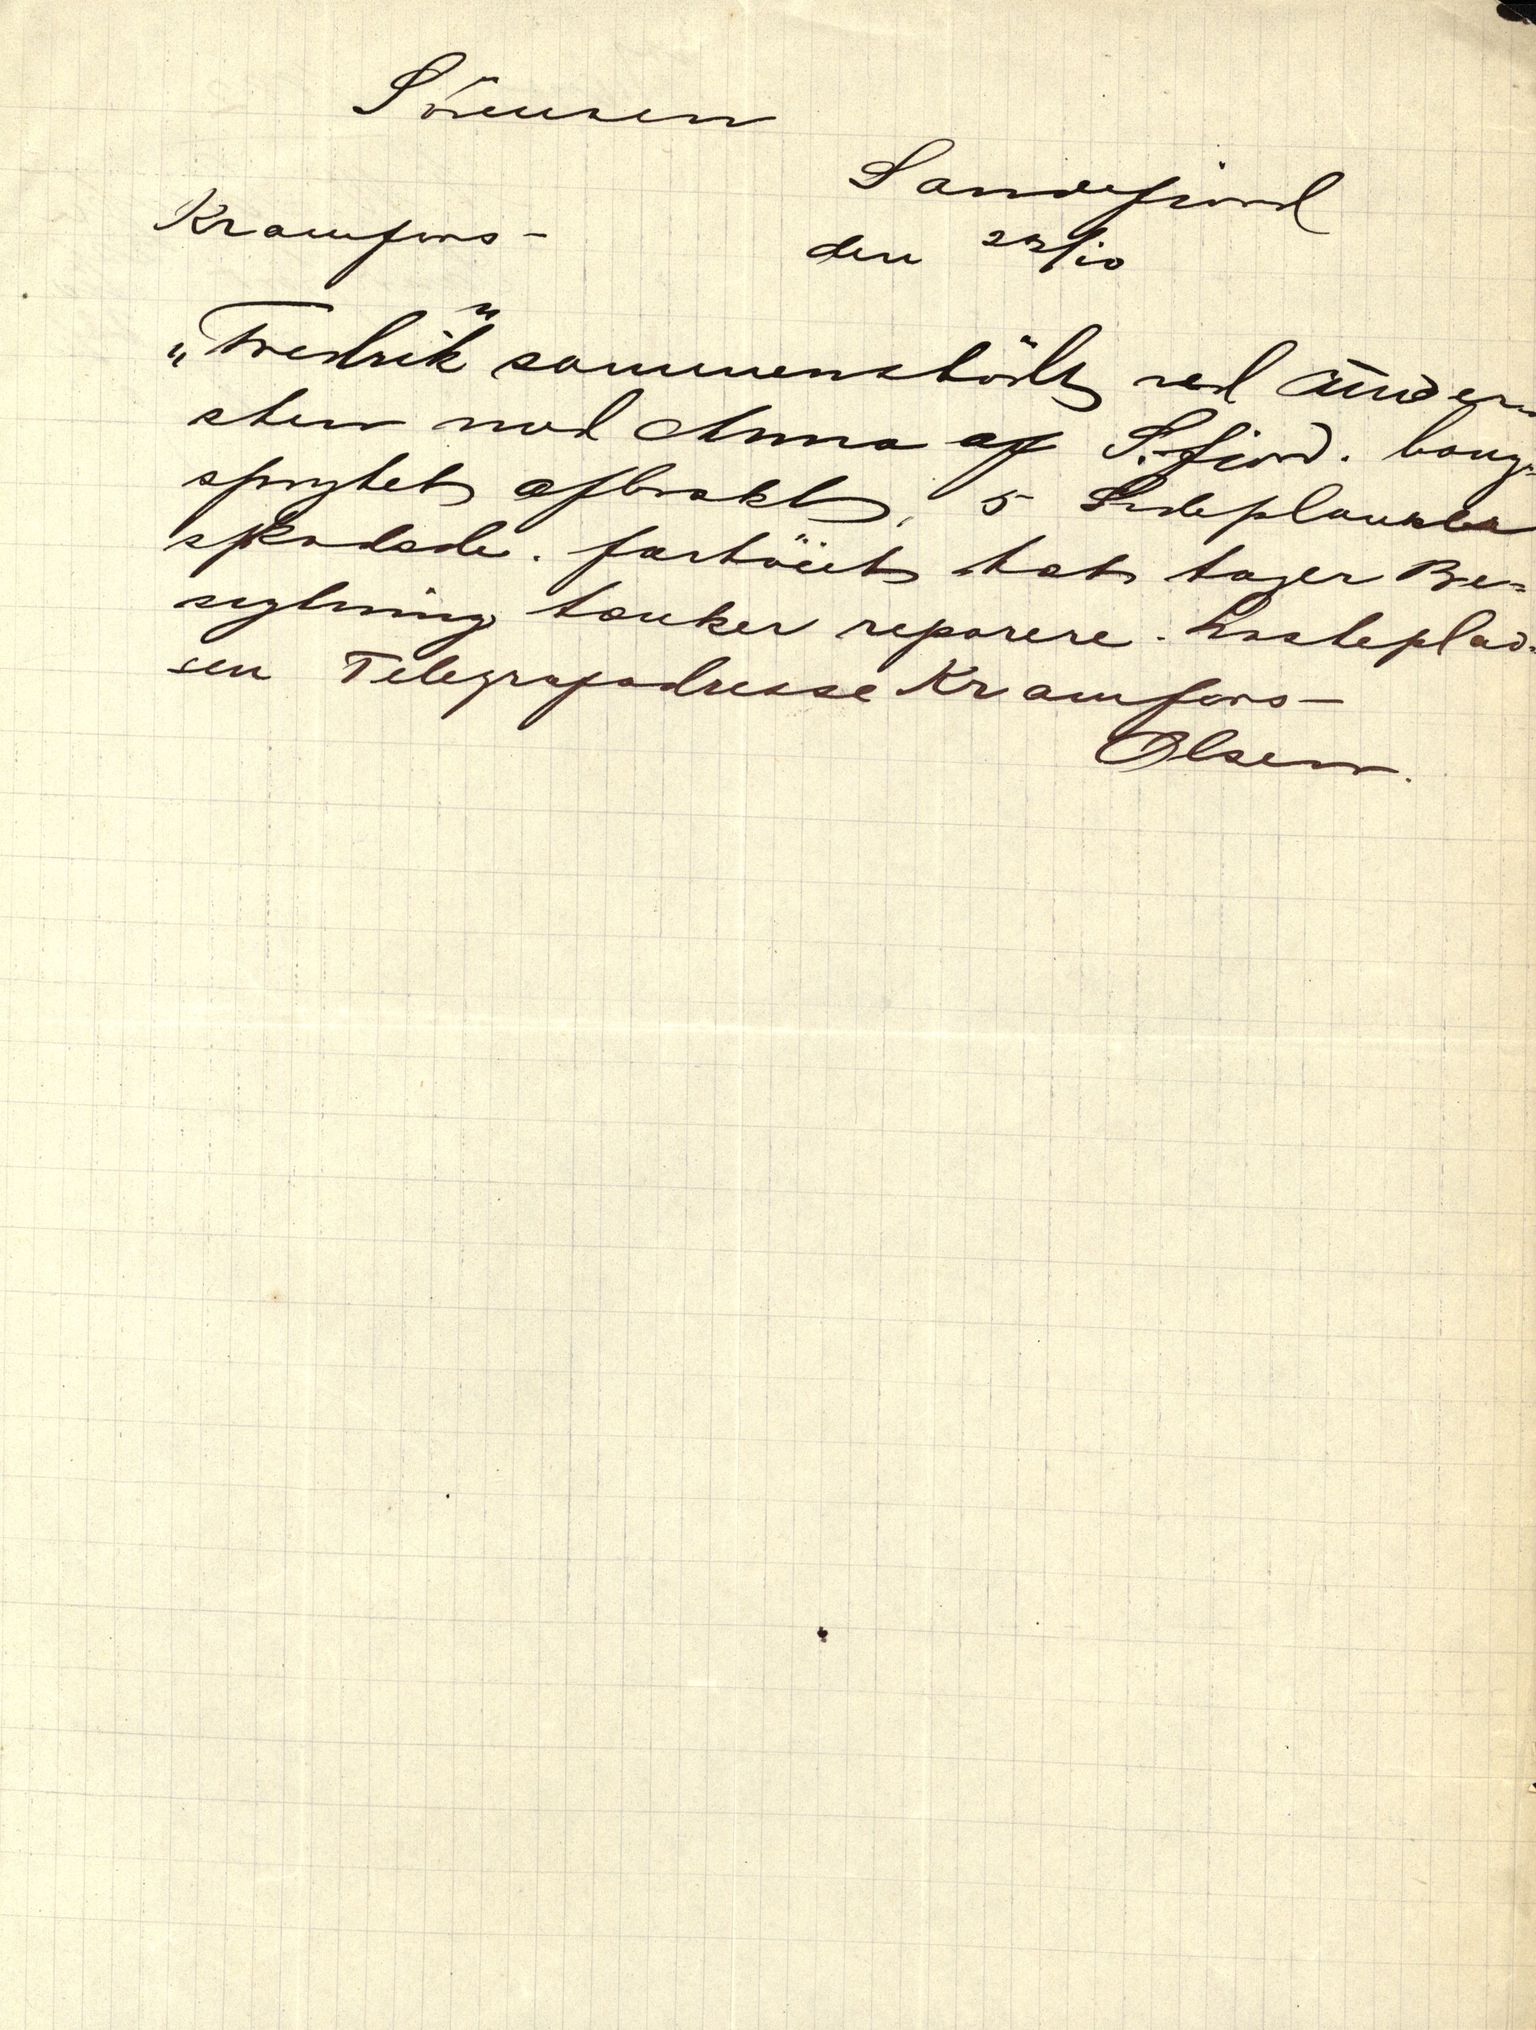 Sörensen
Sandefjord
Kramfors-
den 23/10
„Fredrik" sammenstödt ved Ånder-
sten mod Anna af S.fjord. boug-
sprytet afbrækt, 5 Sideplanker
skadede. fartöiet tæt tager Be-
sigtning tænker reparere. Lasteplad-
sen Telegrafadresse Kramfors-
Olsen.